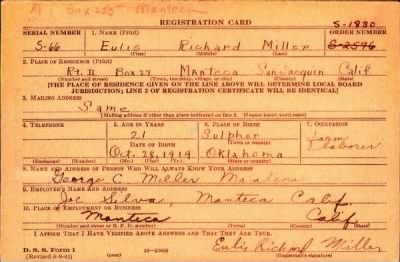 R1 Box 255 Manteca
REGISTRATION CARD
S-1830
SERIAL NUMBER 1. NAME (Print) ORDER NUMBER
S-66 Eulis Richard Miller S-2596
(First) (Middle) (Last)
2. PLACE OF RESIDENCE (Print)
Rt. II Box 27 Manteca San Joaquin Calif
(Number and street) (Town, township, village, or city) (County) (State)
[THE PLACE OF RESIDENCE GIVEN ON THE LINE ABOVE WILL DETERMINE LOCAL BOARD
JURISDICTION; LINE 2 OF REGISTRATION CERTIFICATE WILL BE IDENTICAL]
3. MAILING ADDRESS
Same
[Mailing address if other than place indicated on line 2. If same insert word same]
4. TELEPHONE 5. AGE IN YEARS 6. PLACE OF BIRTH 7. OCCUPATION
21 Sulphur farm
DATE OF BIRTH (Town or county) laborer
Oct. 28, 1919 Oklahoma
(Exchange) (Number) (Mo.) (Day) (Yr.) (State or country)
8. NAME AND ADDRESS OF PERSON WHO WILL ALWAYS KNOW YOUR ADDRESS
George C. Miller
9. EMPLOYER'S NAME AND ADDRESS
Joe Silva, Manteca Calif.
10. PLACE OF EMPLOYMENT OR BUSINESS
Manteca Calif.
(Number and street or R. F. D. number) (Town) (County) (State)
I AFFIRM THAT I HAVE VERIFIED ABOVE ANSWERS AND THAT THEY ARE TRUE.
D. S. S. Form 1
(Revised 6-9-41) Eulis Richard Miller